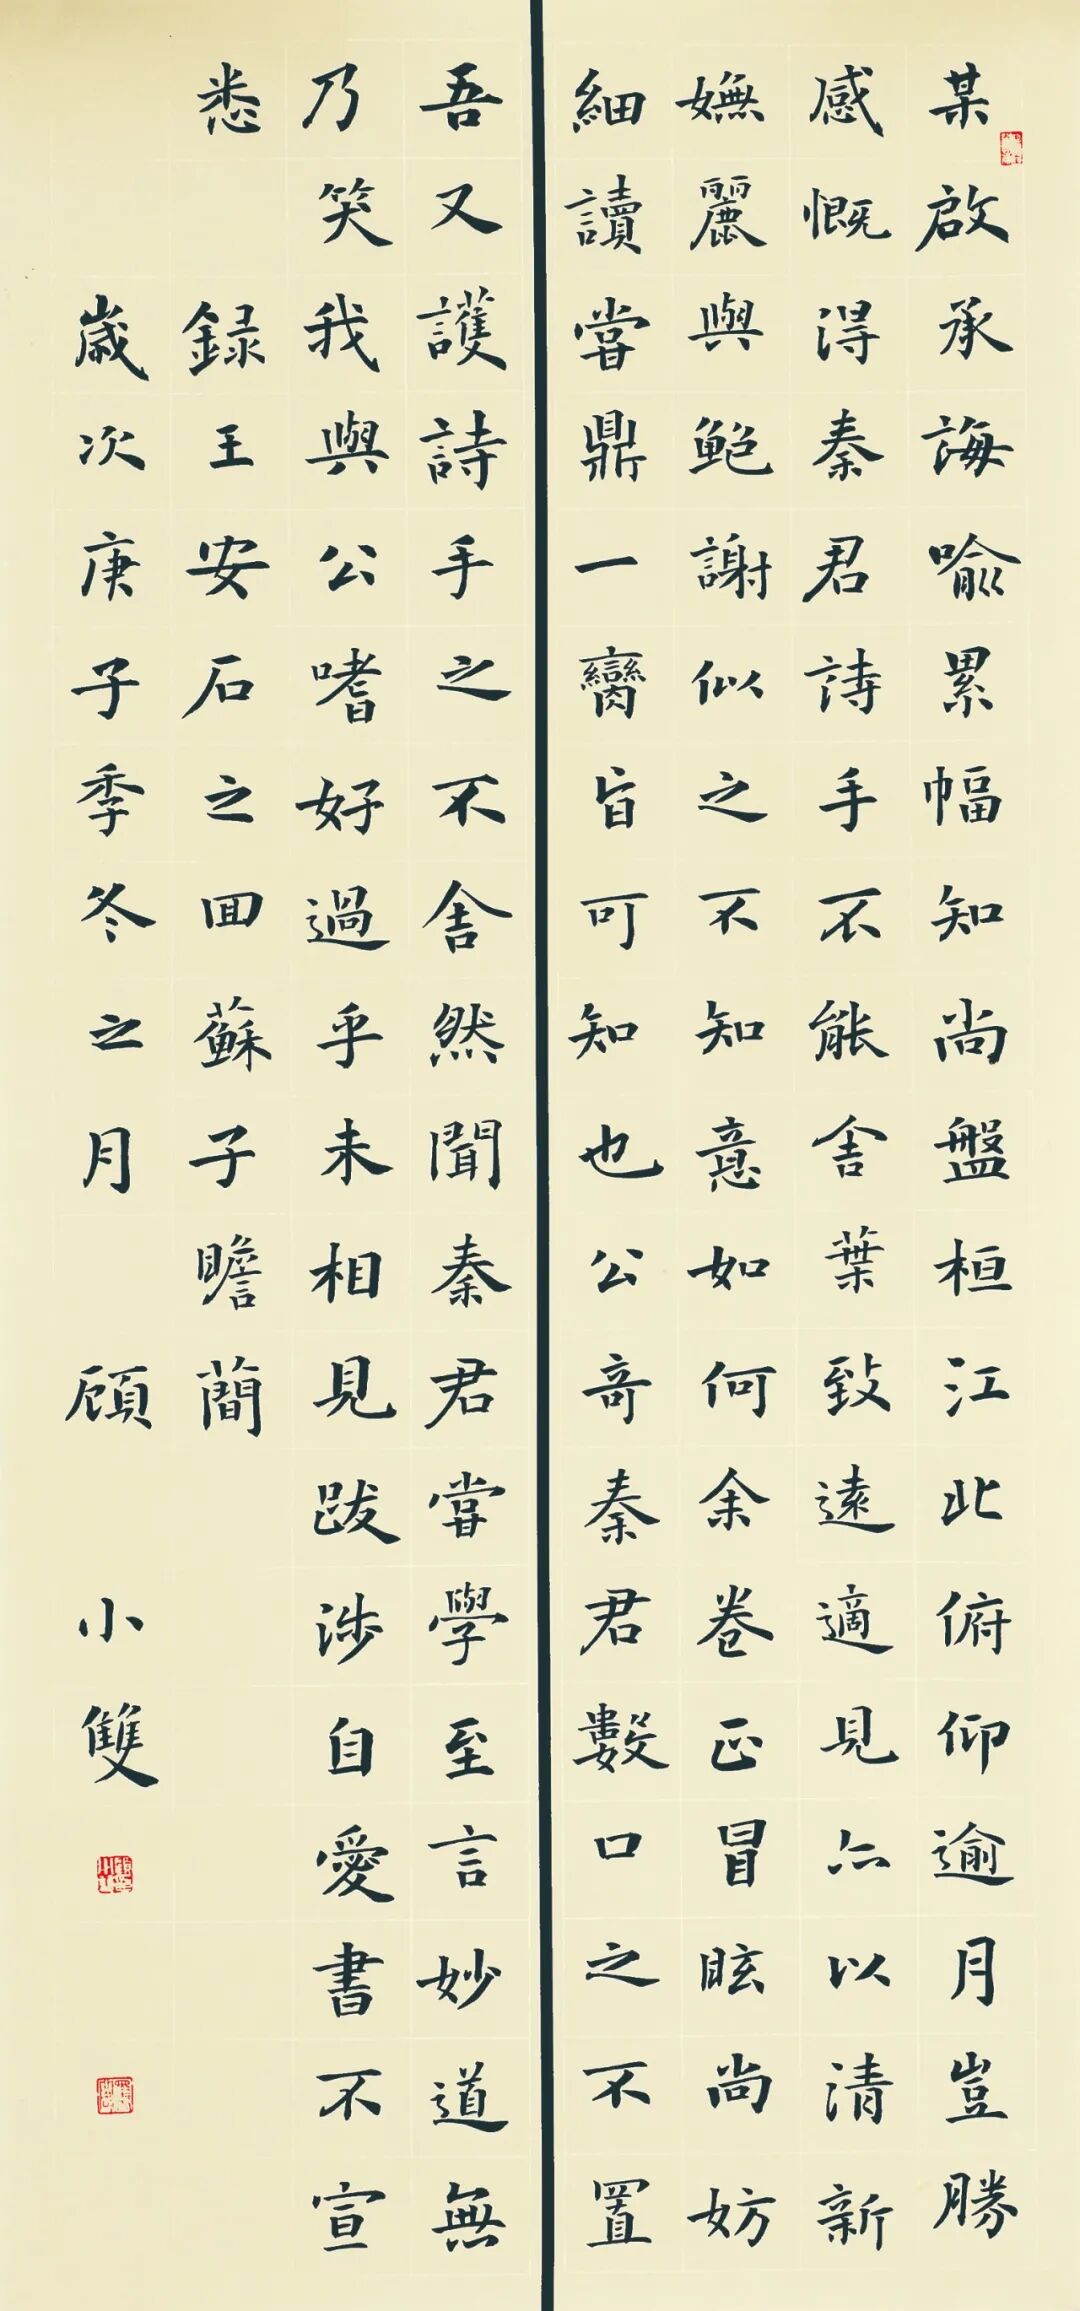 某啟承誨喻累幅知尚盤桓江北俯仰逾月豈勝
感慨得秦君詩手不能舍葉致遠適見亦以清新
嫵麗與鮑謝似之不知意如何余卷正冒眩尚妨
細讀嘗鼎一臠旨可知也公奇秦君數口之不置
吾又護詩手之不舍然聞秦君嘗學至言妙道無
乃笑我與公嗜好過乎未相見跋涉自愛書不宣
悉 録王安石之囬蘇子瞻簡
歲次庚子季冬之月 顧小雙